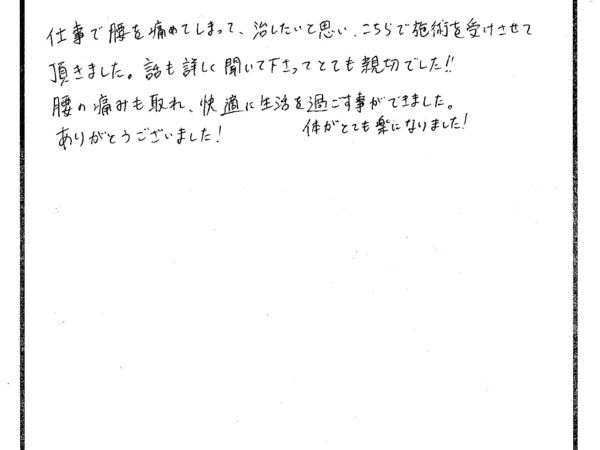 仕事で腰を痛めてしまって、治したいと思い、こちらで施術を受けさせて
頂きました。話も詳しく聞いて下さってとても親切でした!!
腰の痛みも取れ、快適に生活を過ごす事ができました。
ありがとうございました! 体がとても楽になりました!